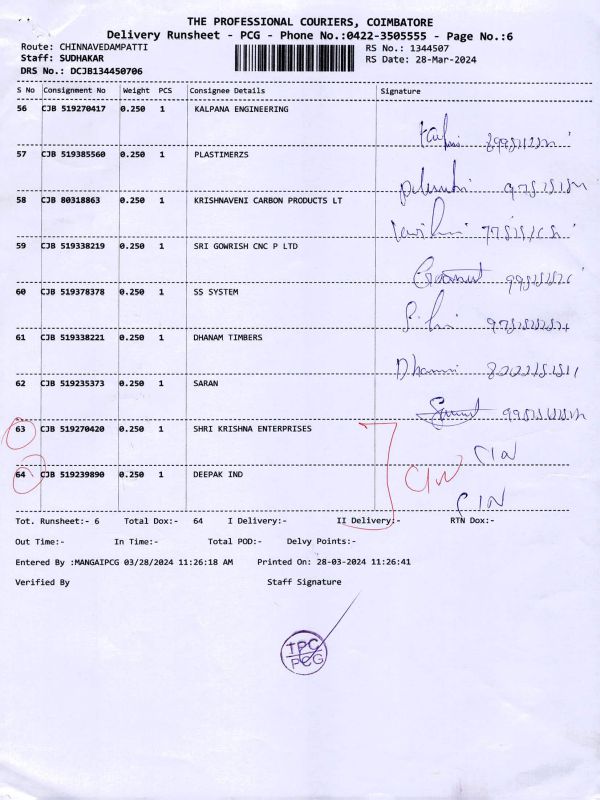 THE PROFESSIONAL COURIERS, COIMBATORE
Delivery Runsheet - PCG - Phone No.:0422-3505555 - Page No.:6
Route: CHINNAVEDAMPATTI RS No.: 1344507
Staff: SUDHAKAR RS Date: 28-Mar-2024
DRS No.: DCJB134450706
S No Consignment No Weight PCS Consignee Details Signature
56 CJB 519270417 0.250 1 KALPANA ENGINEERING
57 CJB 519385560 0.250 1 PLASTIMERZS
58 CJB 80318863 0.250 1 KRISHNAVENI CARBON PRODUCTS LT
59 CJB 519338219 0.250 1 SRI GOWRISH CNC P LTD
60 CJB 519378378 0.250 1 SS SYSTEM
61 CJB 519338221 0.250 1 DHANAM TIMBERS
62 CJB 519235373 0.250 1 SARAN
63 CJB 519270420 0.250 1 SHRI KRISHNA ENTERPRISES
64 CJB 519239890 0.250 1 DEEPAK IND
Tot. Runsheet:- 6 Total Dox:- 64 I Delivery:- II Delivery:- RTN Dox:-
Out Time:- In Time:- Total POD:- Delvy Points:-
Entered By :MANGAIPCG 03/28/2024 11:26:18 AM Printed On: 28-03-2024 11:26:41
Verified By Staff Signature
TPC
PCG